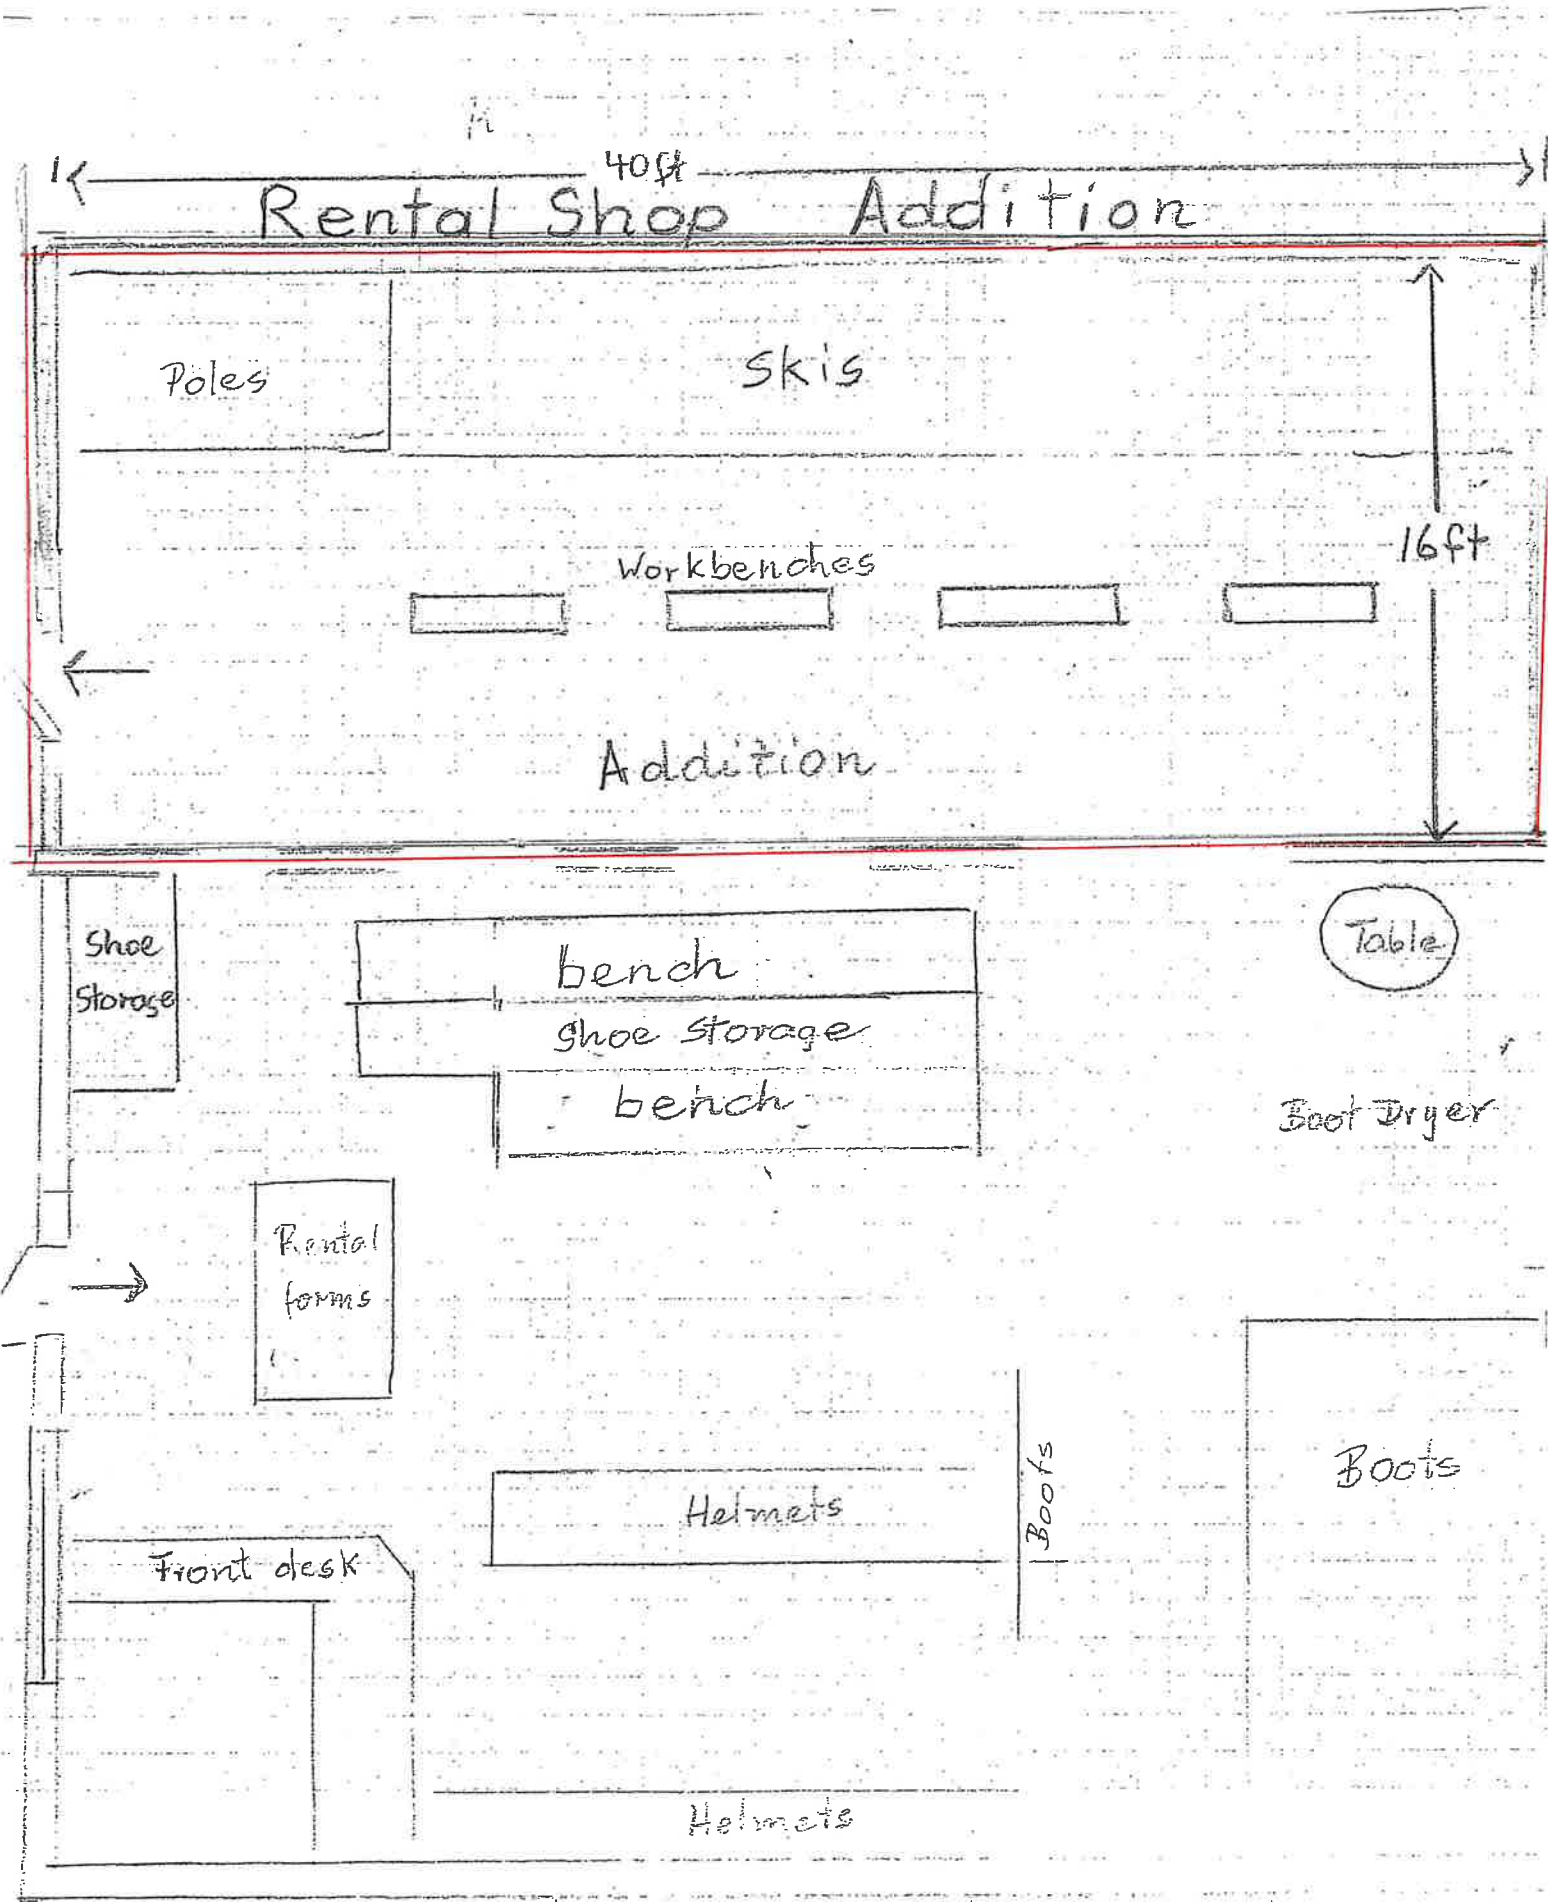 40ft
Rental Shop Addition
Poles
Skis
16ft
Workbenches
Addition
Shoe
Storage
bench
Shoe Storage
bench
Table
Boot Dryer
Rental
forms
Helmets
Boots
Boots
Front desk
Helmets